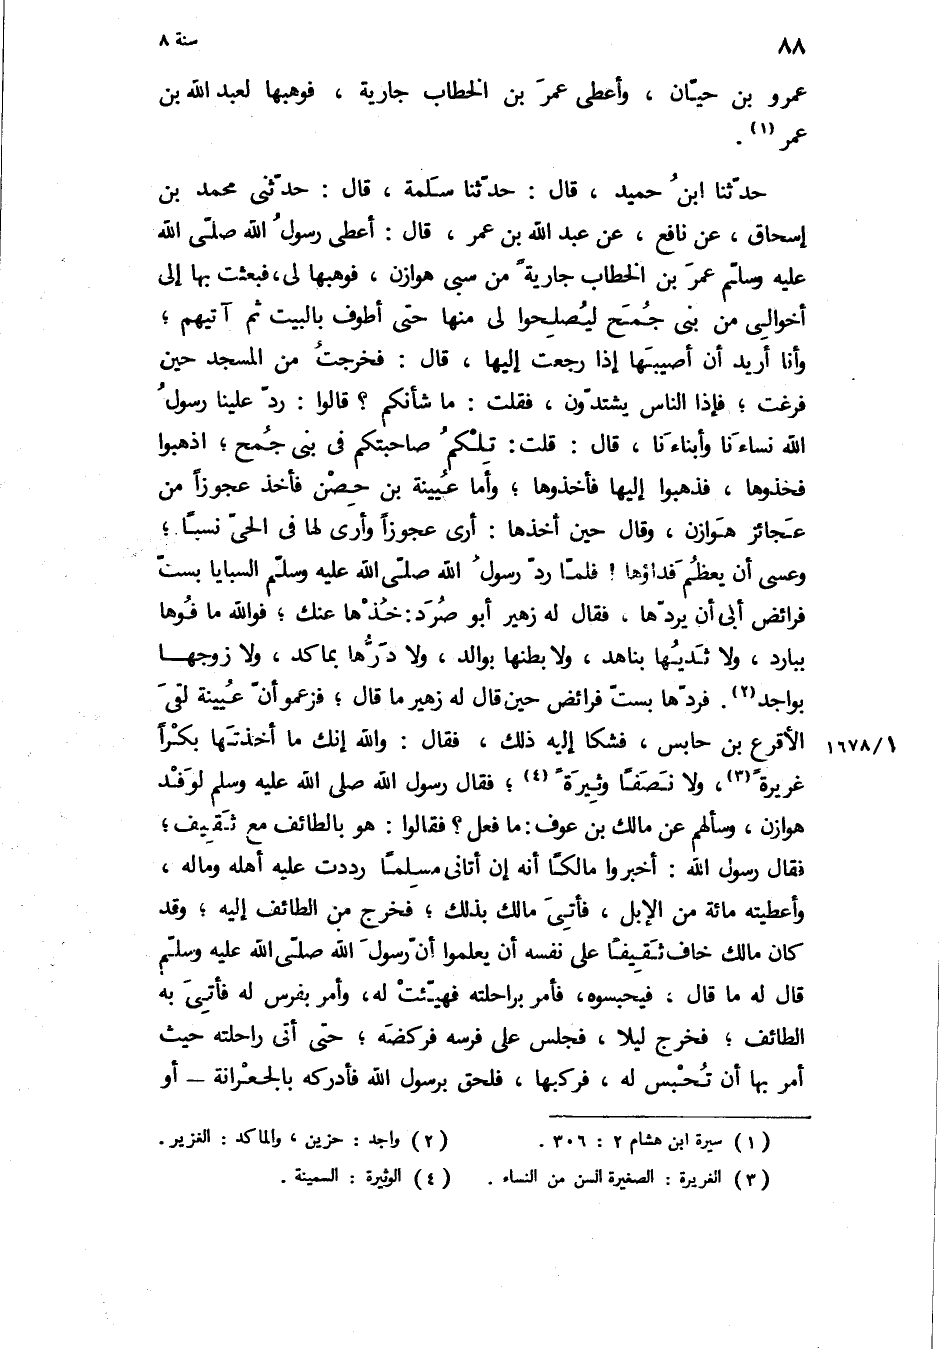 ٨٨ سنة ٨
عمرو بن حيّان ، وأعطى عمرَ بن الخطاب جارية ، فوهبها لعبد الله بن
عمر (١) .
حدّثنا ابنُ حميد ، قال : حدّثنا سَلمة ، قال : حدّثنى محمد بن
إسحاق ، عن نافع ، عن عبد الله بن عمر ، قال : أعطى رسولُ الله صلّى الله
عليه وسلّم عمرَ بن الخطاب جاريةً من سبى هوازن ، فوهبها لى، فبعثت بها إلى
أخوالى من بنى جُمَح ليُصلِحوا لى منها حتّى أطوف بالبيت ثم آتيهم ؛
وأنا أريد أن أصيبَها إذا رجعت إليها ، قال : فخرجتُ من المسجد حين
فرغت ؛ فإذا الناس يشتدّون ، فقلت : ما شأنكم ؟ قالوا : ردّ علينا رسولُ
الله نساءَنا وأبناءَنا ، قال : قلت : تِلْكمُ صاحبتكم فى بنى جُمح ؛ اذهبوا
فخذوها ، فذهبوا إليها فأخذوها ؛ وأما عُيينة بن حِصْن فأخذ عجوزاً من
عَجائز هَوازن ، وقال حين أخذها : أرى عجوزاً وأرى لها فى الحىّ نسبًا ؛
وعسى أن يعظُم فَداؤها ! فلمّا ردّ رسولُ الله صلّى الله عليه وسلّم السبايا بستّ
فرائض أبى أن يردّها ، فقال له زهير أبو صُرَد: خُذْها عنك ؛ فوالله ما فُوها
ببارد ، ولا ثَديُها بناهد ، ولا بطنها بوالد ، ولا دَرُّها بماكد ، ولا زوجها
بواجد (٢) . فردّها بستّ فرائض حين قال له زهير ما قال ؛ فزعموا أنّ عُيينة لقىَ
١٦٧٨/١ الأقرع بن حابس ، فشكا إليه ذلك ، فقال : والله إنك ما أخذتَها بكْراً
غريرةً (٣)، ولا نَصَفًا وثِيرَةً (٤) ؛ فقال رسول الله صلى الله عليه وسلم لوَفْد
هوازن ، وسألهم عن مالك بن عوف: ما فعل ؟ فقالوا : هو بالطائف مع ثَقِيف ؛
فقال رسول الله : أخبروا مالكًا أنه إن أتانى مسلِمًا رددت عليه أهله وماله ،
وأعطيته مائة من الإبل ، فأتِىَ مالك بذلك ؛ فخرج من الطائف إليه ؛ وقد
كان مالك خاف ثَقِيفًا على نفسه أن يعلموا أنّ رسولَ الله صلّى الله عليه وسلّم
قال له ما قال ؛ فيحبسوه، فأمر براحلته فهيّئتْ له، وأمر بفرس له فأتِىَ به
الطائف ؛ فخرج ليلا ، فجلس على فرسه فركضَه ؛ حتّى أتى راحلته حيث
أمر بها أن تُحْبس له ، فركبها ، فلحق برسول الله فأدركه بالجِعْرانة – أو
(١) سيرة ابن هشام ٢ : ٣٠٦ . (٢) واجد : حزين ، والماكد : الغزير .
(٣) الغريرة : الصغيرة السن من النساء . (٤) الوثيرة : السمينة .